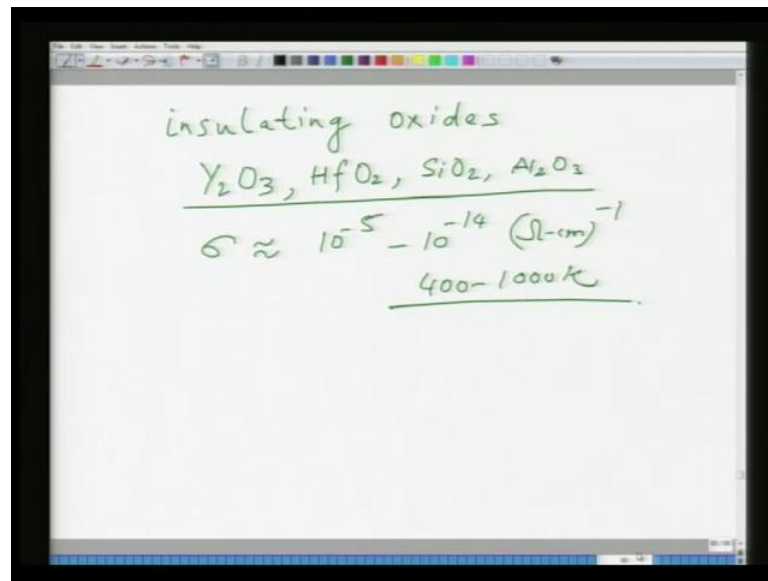 File Edit View Insert Actions Tools Help
insulating oxides
Y₂O₃, HfO₂, SiO₂, Al₂O₃
σ ≈ 10⁻⁵ – 10⁻¹⁴ (Ω-cm)⁻¹
400-1000K